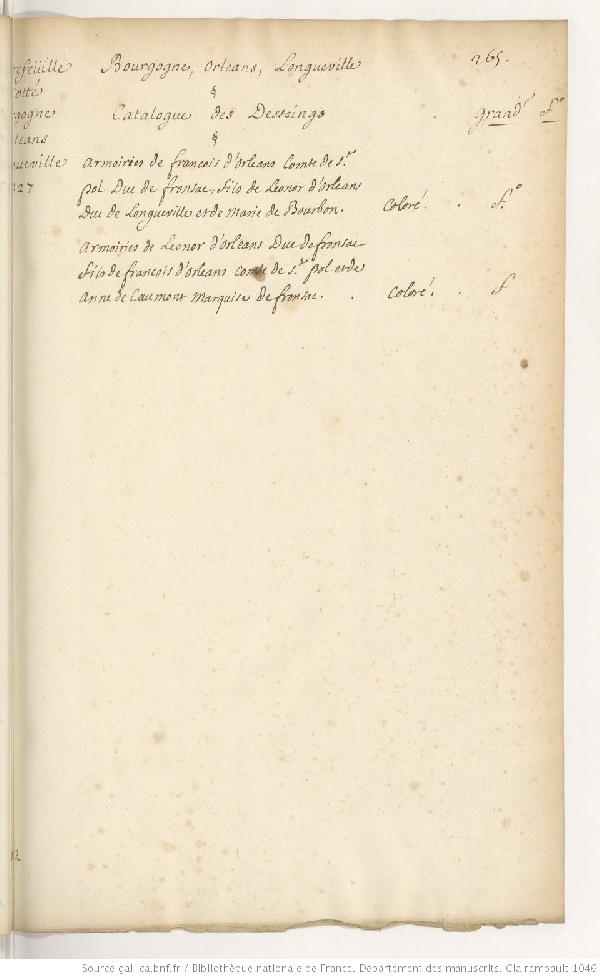 265.
Bourgogne, Orleans, Longueville
§
Catalogue des Desseings
§
Grand.r f.o
Armoiries de francois d'Orleans Comte de s.t
pol Duc de fronsac, fils de Leonor d'Orleans
Duc de Longueville et de Marie de Bourbon. Coloré. . f.o
Armoiries de Leonor d'Orleans Duc de fronsac
fils de francois d'Orleans Comte de s.t pol et de
Anne de Caumont Marquise de fronsac. . Coloré. . f
refeüille
otté
gogne
leans
ueville
27
12
Source gallica.bnf.fr / Bibliothèque nationale de France. Département des manuscrits. Clairambault 1046